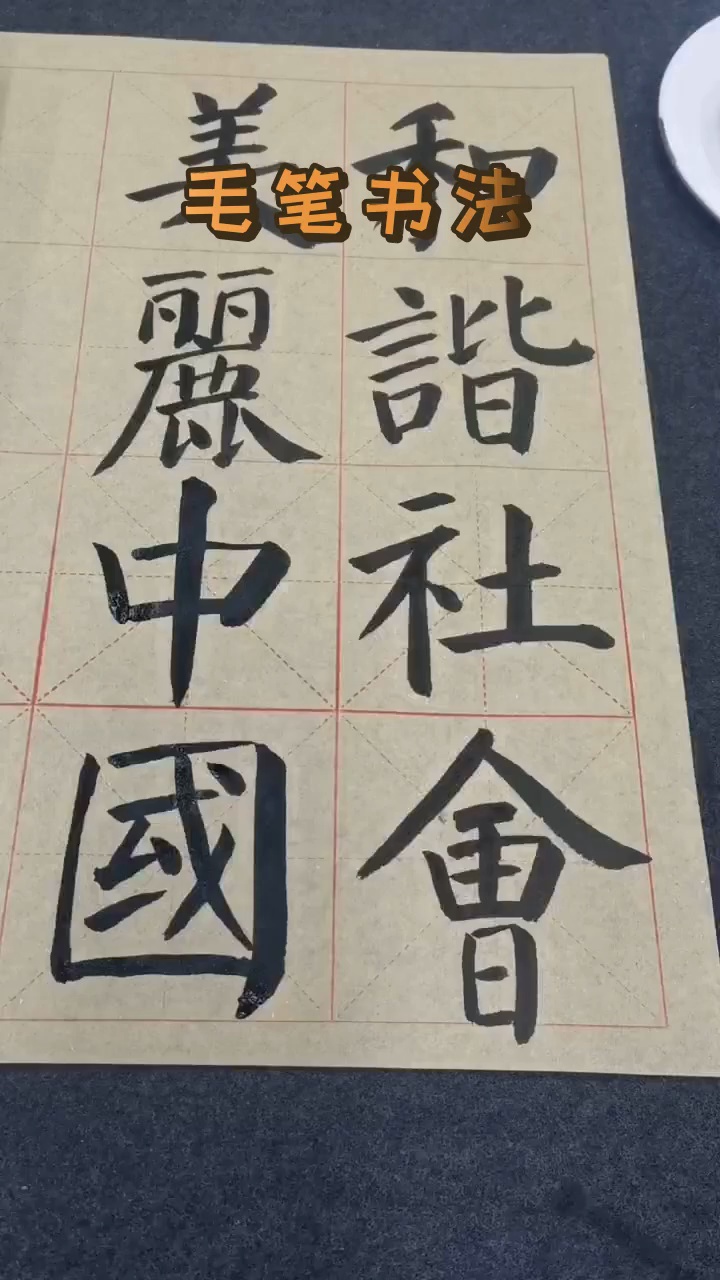 毛笔书法
和諧社會
美麗中國